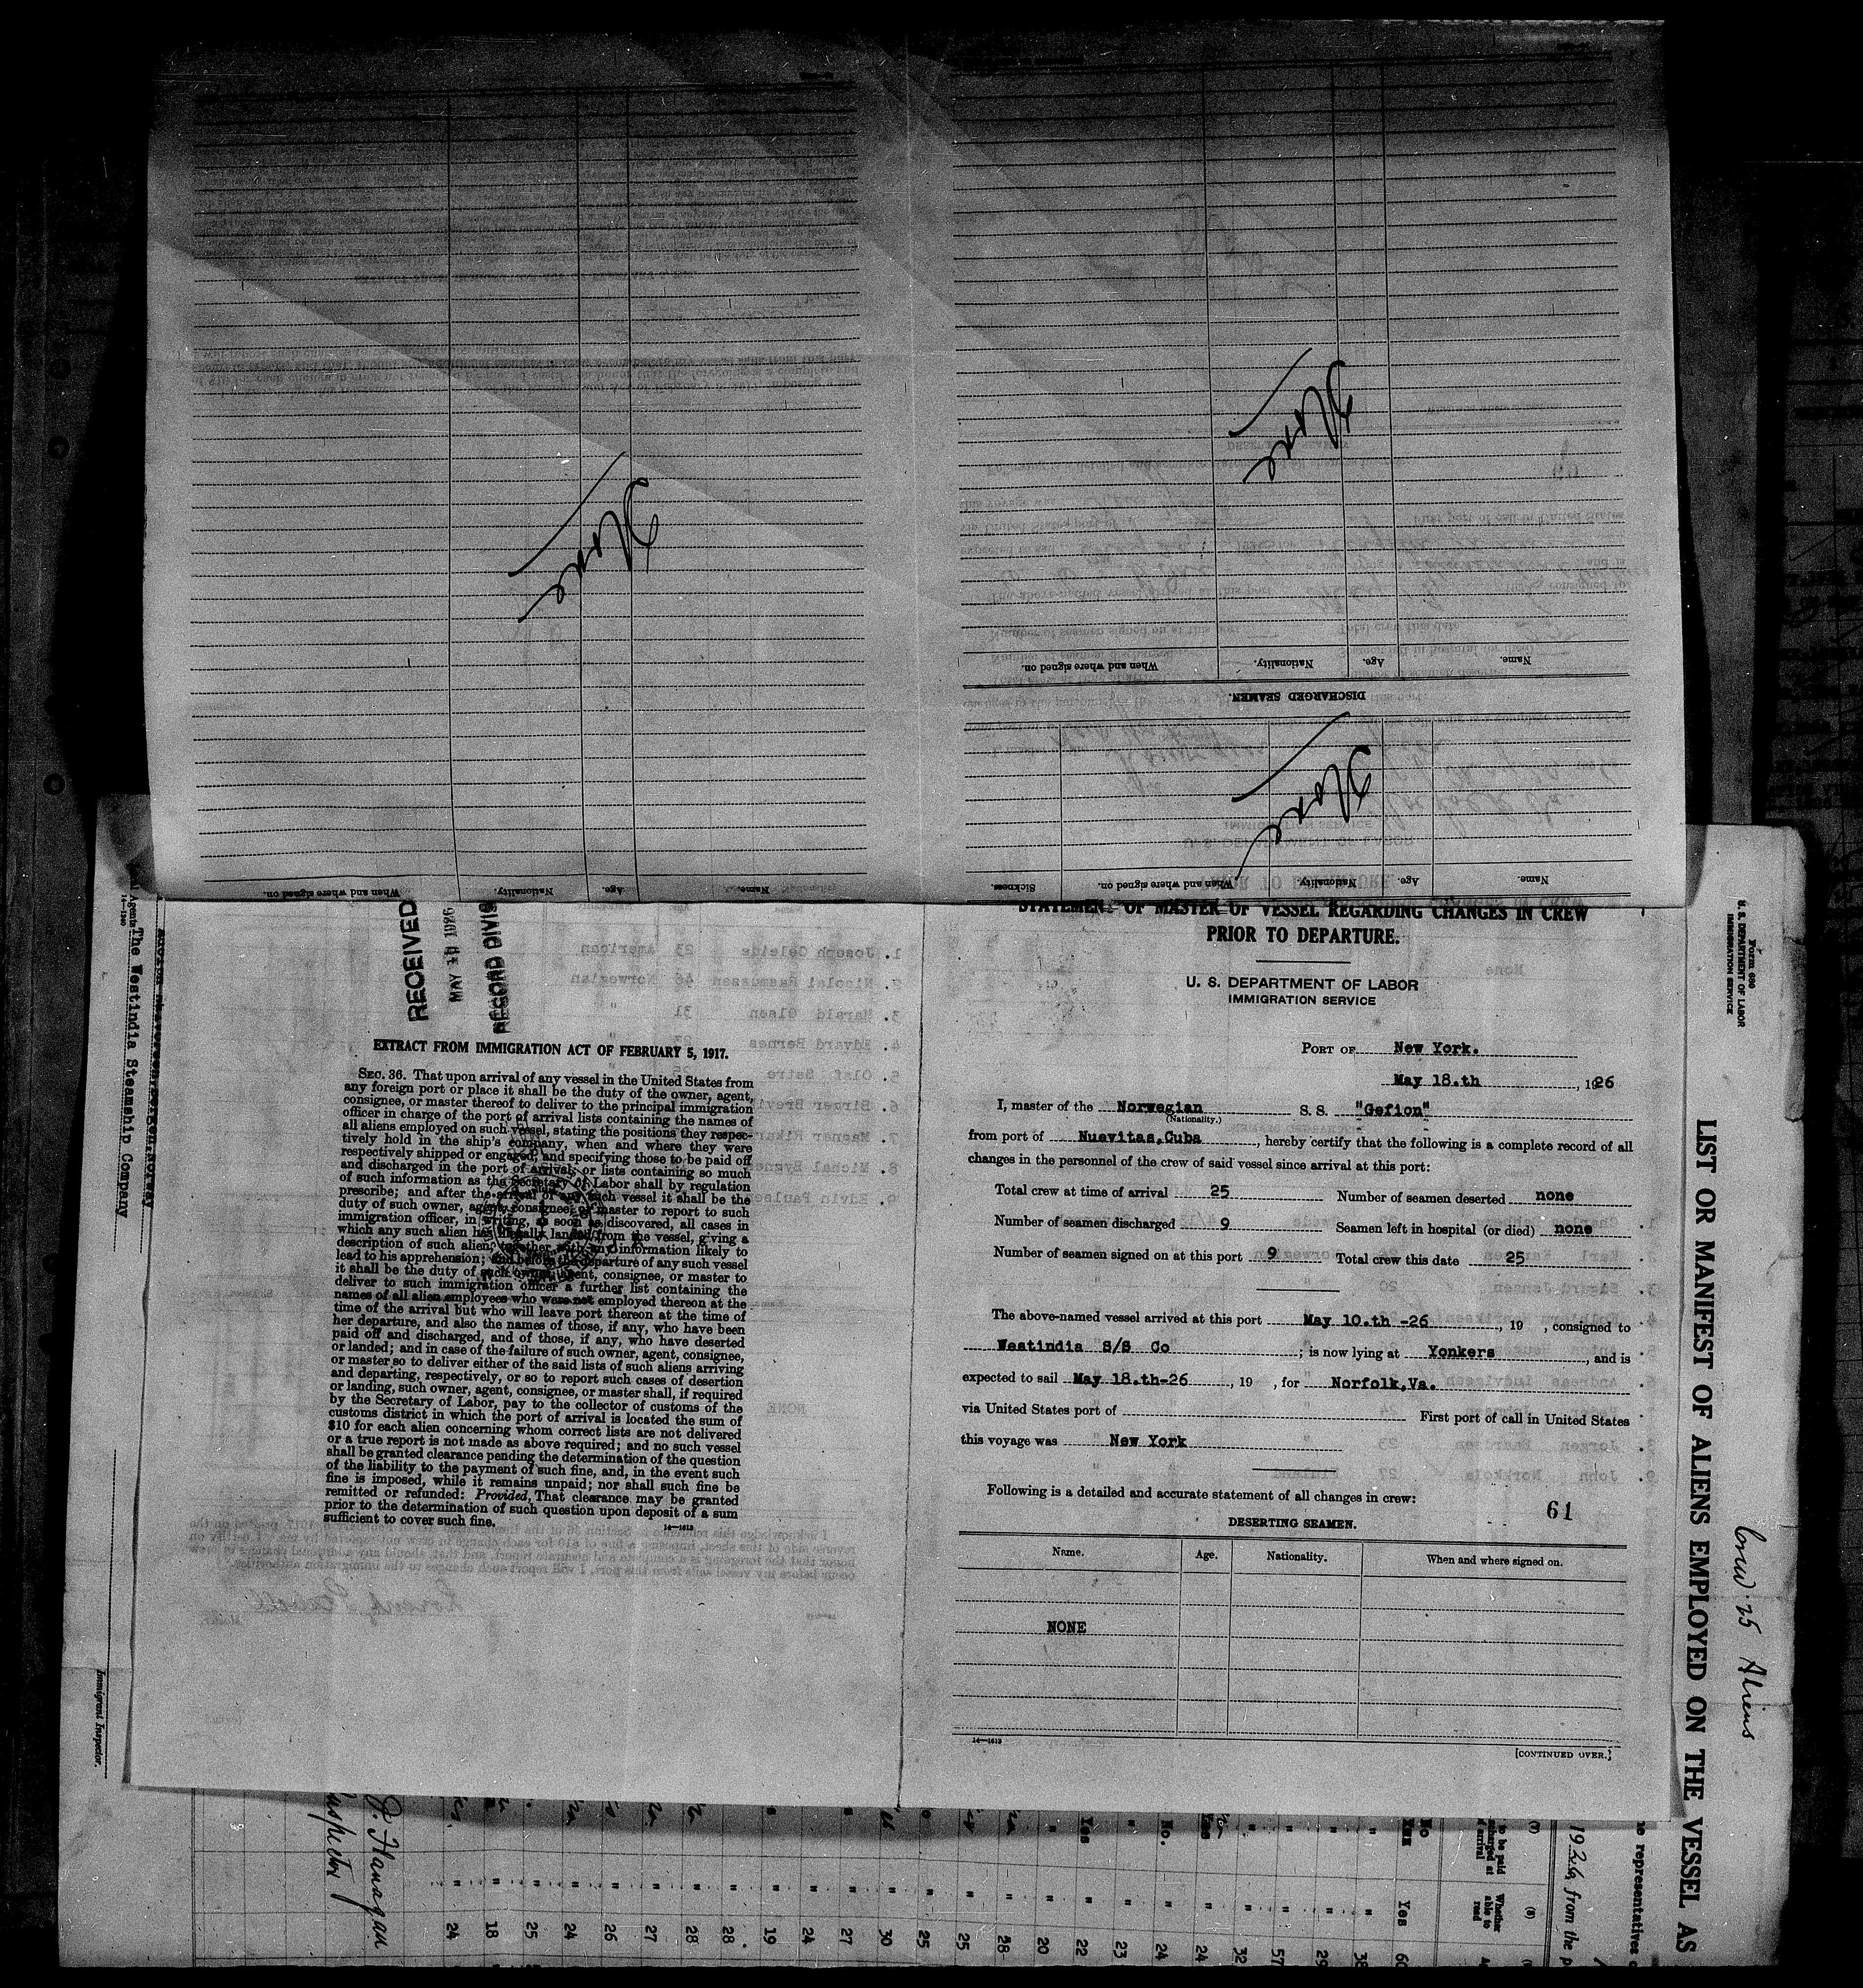 When and where signed on.
Nationality.
Age.
Name.
None
Name.
Age.
Nationality.
When and where signed on.
Sickness.
None
DISCHARGED SEAMEN.
Name.
Age.
Nationality.
When and where signed on.
None
RECEIVED
MAY 1926
RECORD DIVIS
EXTRACT FROM IMMIGRATION ACT OF FEBRUARY 5, 1917.
SEC. 36. That upon arrival of any vessel in the United States from
any foreign port or place it shall be the duty of the owner, agent,
consignee, or master thereof to deliver to the principal immigration
officer in charge of the port of arrival lists containing the names of
all aliens employed on such vessel, stating the positions they respec-
tively hold in the ship's company, when and where they were
respectively shipped or engaged, and specifying those to be paid off
and discharged in the port of arrival; or lists containing so much
of such information as the Secretary of Labor shall by regulation
prescribe; and after the arrival of any such vessel it shall be the
duty of such owner, agent, consignee, or master to report to such
immigration officer, in writing, as soon as discovered, all cases in
which any such alien has illegally landed from the vessel, giving a
description of such alien, together with any information likely to
lead to his apprehension; and before the departure of any such vessel
it shall be the duty of such owner, agent, consignee, or master to
deliver to such immigration officer a further list containing the
names of all alien employees who were not employed thereon at the
time of the arrival but who will leave port thereon at the time of
her departure, and also the names of those, if any, who have been
paid off and discharged, and of those, if any, who have deserted
or landed; and in case of the failure of such owner, agent, consignee,
or master so to deliver either of the said lists of such aliens arriving
and departing, respectively, or so to report such cases of desertion
or landing, such owner, agent, consignee, or master shall, if required
by the Secretary of Labor, pay to the collector of customs of the
customs district in which the port of arrival is located the sum of
$10 for each alien concerning whom correct lists are not delivered
or a true report is not made as above required; and no such vessel
shall be granted clearance pending the determination of the question
of the liability to the payment of such fine, and, in the event such
fine is imposed, while it remains unpaid; nor shall such fine be
remitted or refunded: Provided, That clearance may be granted
prior to the determination of such question upon deposit of a sum
sufficient to cover such fine.
14—1613
STATEMENT OF MASTER OF VESSEL REGARDING CHANGES IN CREW
PRIOR TO DEPARTURE.
U. S. DEPARTMENT OF LABOR
IMMIGRATION SERVICE
PORT OF New York.
May 18.th, 1926
I, master of the Norwegian S. S. "Gefion"
(Nationality.)
from port of Nuevitas,Cuba, hereby certify that the following is a complete record of all
changes in the personnel of the crew of said vessel since arrival at this port:
Total crew at time of arrival 25 Number of seamen deserted none
Number of seamen discharged 9 Seamen left in hospital (or died) none
Number of seamen signed on at this port 9 Total crew this date 25
The above-named vessel arrived at this port May 10.th -26, 19 , consigned to
Westindia S/S Co; is now lying at Yonkers, and is
expected to sail May 18.th-26, 19 , for Norfolk,Va.
via United States port of First port of call in United States
this voyage was New York
Following is a detailed and accurate statement of all changes in crew:
61
DESERTING SEAMEN.
Name. Age. Nationality. When and where signed on.
NONE
14—1613
[CONTINUED OVER.]
Form 680
U. S. DEPARTMENT OF LABOR
IMMIGRATION SERVICE
LIST OR MANIFEST OF ALIENS EMPLOYED ON THE VESSEL AS
Crew 25 Aliens
The Westindia Steamship Company
14—1240
Immigrant Inspector.
J. Flanagan
Inspector
1926 from the p
representatives
(7) (8)
Whether able to read
No Yes
24 18 25 24 26 27 28 28 19 24 27 30 25 25 28 20 22 23 24 24 32 57 29 38 60